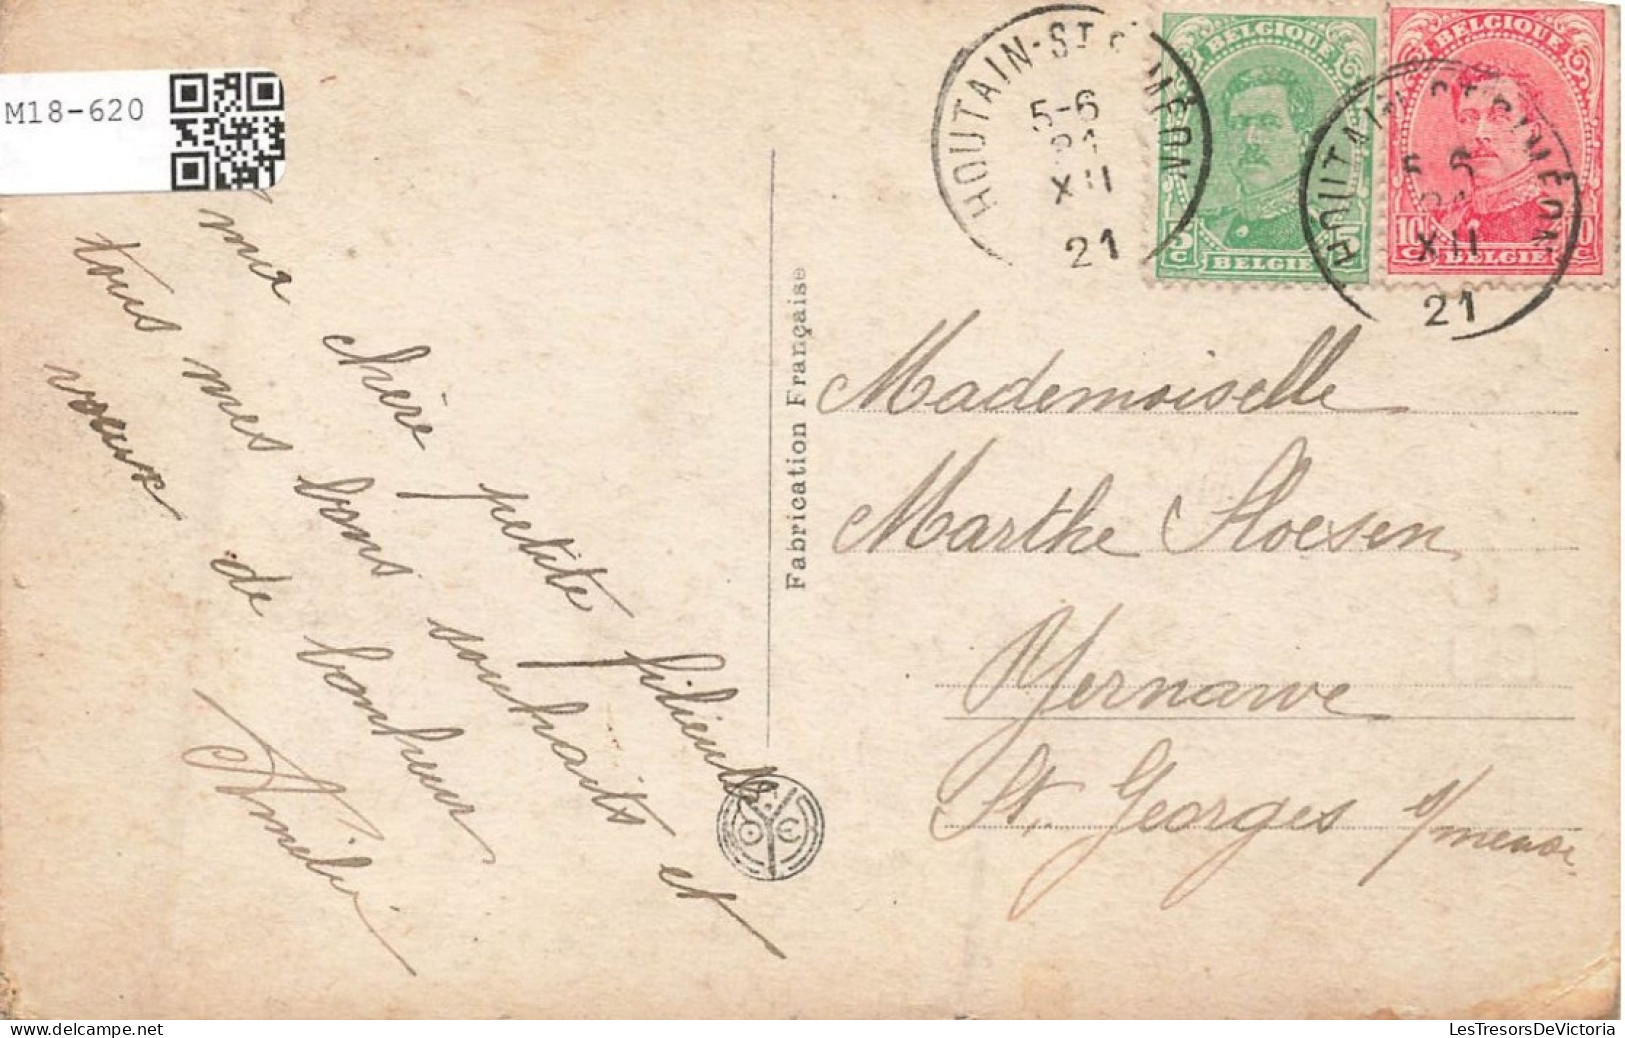 M18-620
HOUTAIN-ST SIMÉON
5-6
21
XII
21
BELGIQUE
5 c
BELGIE
BELGIQUE
10 c
BELGIE
HOUTAIN-ST SIMÉON
5-6
21
XII
21
ma chère petite filieulle
tous mes bons souhaits et
voeux de bonheur
Amélie
Fabrication Française
Mademoiselle
Marthe Sloesen
Yernawe
St. Georges s/meuse
LesTresorsDeVictoria
delcampe.net